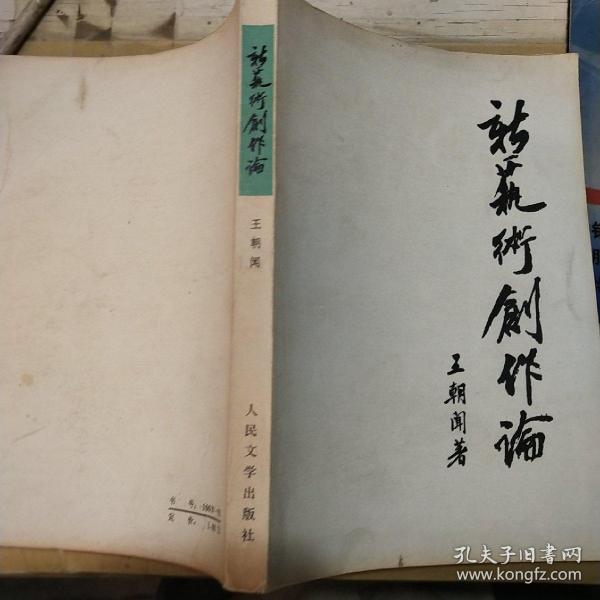 新藝術創作論
王朝聞著
新藝術創作論
王朝闻
人民文学出版社
书号：
定价：
孔夫子旧书网
www.kongfz.com